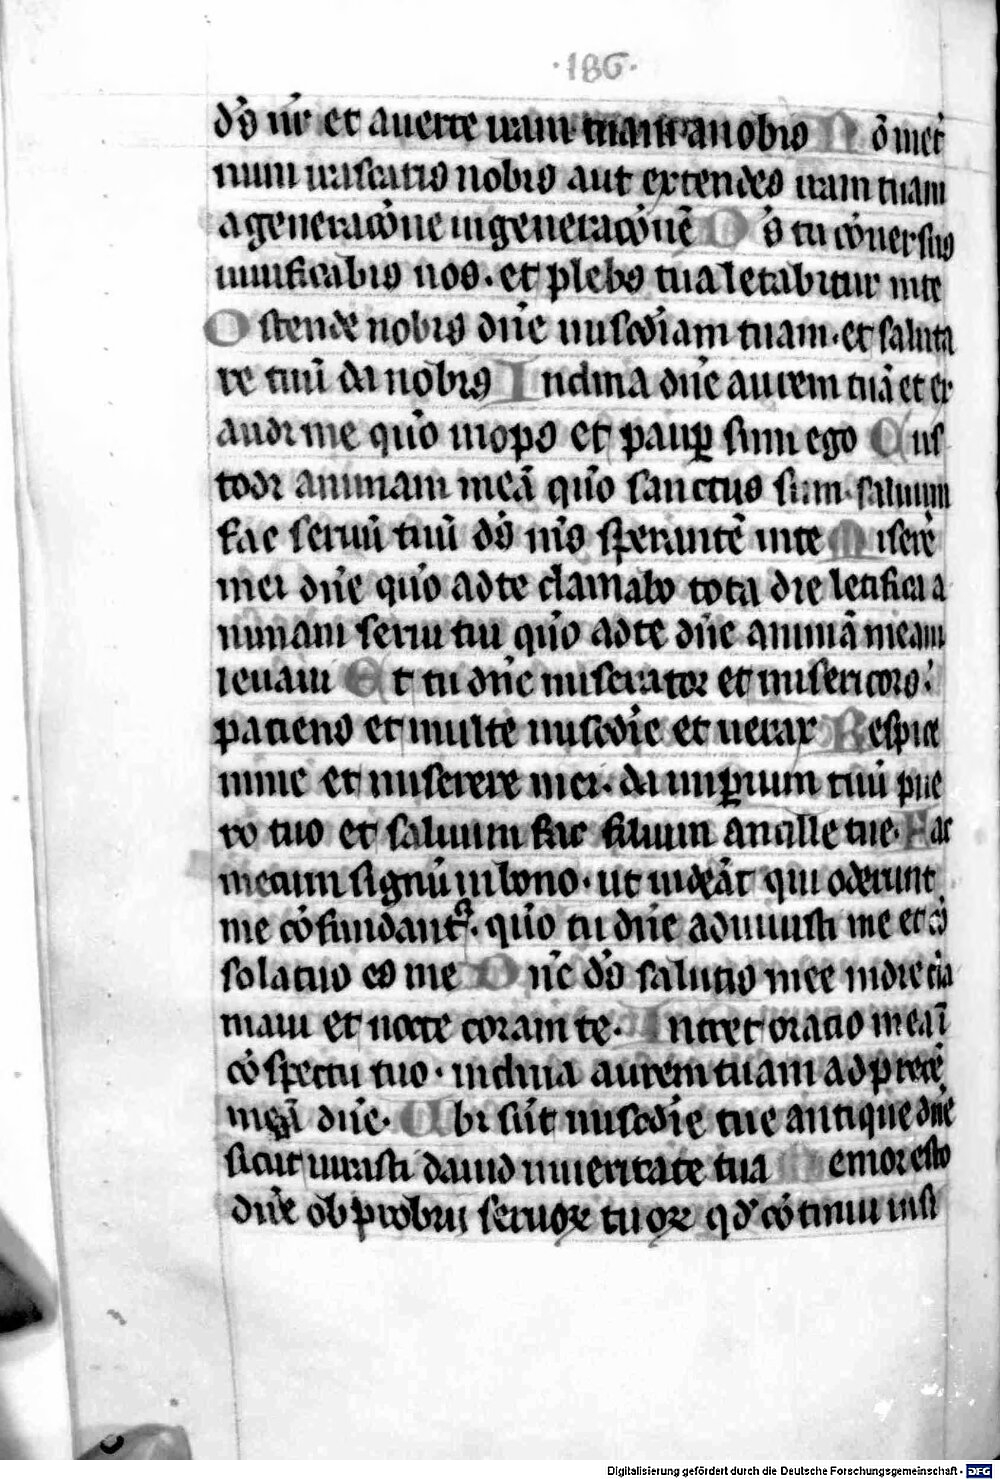 ·186·
ds̄ nr̄ et auerte iram tuam a nobis Nō inet̄
num irascaris nobis aut extendes iram tuam
a generacōne in generacōnē Ds̄ tu cōuersus
uiuificabis nos · et plebs tua letabitur in te
Ostende nobis dn̄e misc̄diam tuam · et saluta
re tuū da nobis Inclina dn̄e aurem tuā et ex
audi me qūo inops et paup̄ sum ego Cus
todi animam meā qūo sanctus sum · saluum
fac seruū tuū ds̄ m̄s sperantē in te Miserē
mei dn̄e qūo ad te clamabo tota die letifica a
nimam serui tui qūo ad te dn̄e animā meam
leuaui Et tu dn̄e miserator et misericors ·
paciens et multe misc̄die et uerax Respice
in me et miserere mei · da imp̄ium tuū pue
ro tuo et saluum fac filium ancille tue · Fac
mecum signū in bono · ut uideāt qui oderunt
me cōfundant᷑ · qūo tu dn̄e adiuuisti me et cō
solatus es me Dn̄e ds̄ salutis mee in die cla
maui et nocte coram te · Intret oratio mea ī
cōspectu tuo · inclina aurem tuam ad precē
meā dn̄e · Ubi sūt misc̄die tue antique dn̄e
sicut iurasti dauid in ueritate tua Memor esto
dn̄e obprobrij seruoꝝ tuoꝝ qd̄ cōtinui in si
Digitalisierung gefördert durch die Deutsche Forschungsgemeinschaft - DFG